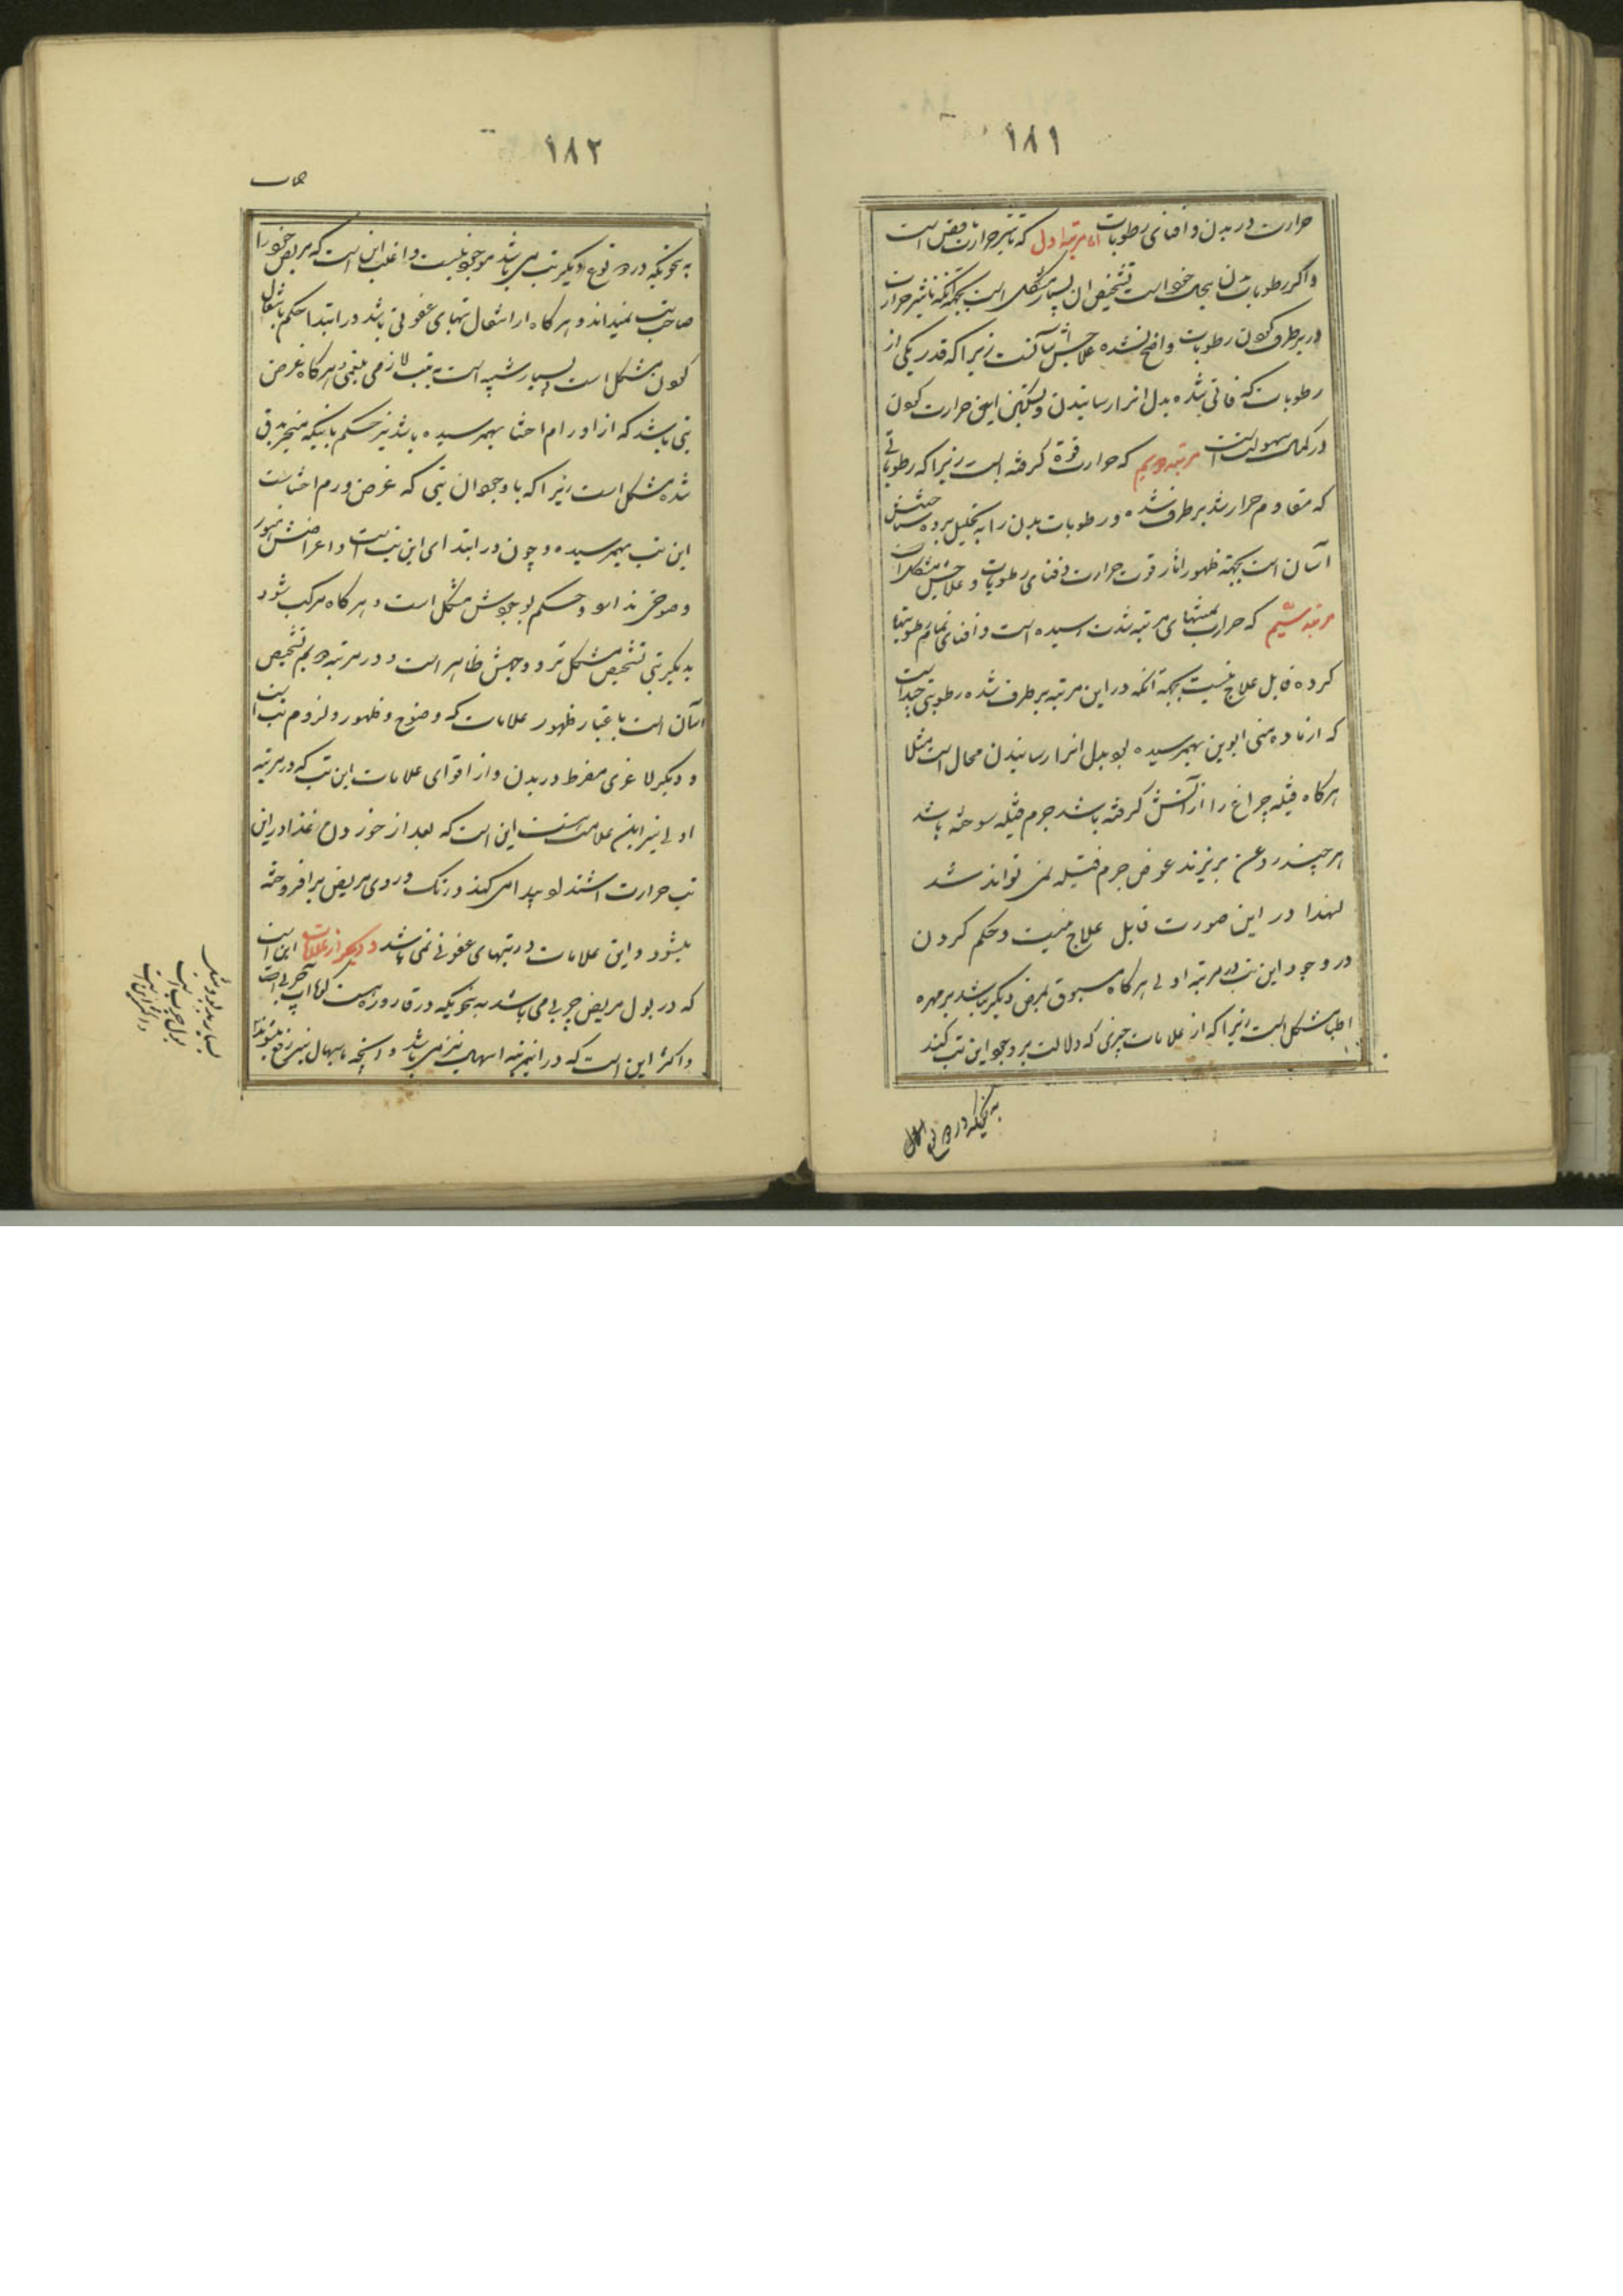 ۱۸۱
حرارت در بدن و افنای رطوبات اما مرتبه اول که تاثیر حرارت ناقص است
و اکثر رطوبات بدن بحال خود است تشخیص ان بسیار مشکل است بجهة آنکه تاثیر حرارت
در برطرف کردن رطوبات واضح نشده علاجش آسانست زیرا که قدر یکی از
رطوبات که فانی شده بدل انرا رسانیدن و تسکین این حرارت کردن
در کمال سهولت است مرتبه دویم که حرارت قوة گرفته است زیرا که رطوباتی
که مقاوم حرارتند برطرف شده و رطوبات بدن را به تحلیل برده شناختنش
آسان است بجهة ظهور اثار قوت حرارت و فنای رطوبات و علاجش مشکل است
مرتبه سیم که حرارت بمنتهای مرتبه شدت رسیده است و افنای تمام رطوبتها
کرده قابل علاج نیست بجهة آنکه در این مرتبه برطرف شده رطوبتی چند است
که از ماده منی ابوین بهمرسیده بود بدل انرا رسانیدن محال است مثلا
هرگاه فتیله چراغ را از آتش گرفته باشد جرم فتیله سوخته باشد
هر چند روغن بریزند عوض جرم فتیله نمی تواند شد
لهذا در این صورت قابل علاج نیست و حکم کردن
در وجود این تب در مرتبه اولی هرگاه مسبوق بمرض دیگر نباشد بر مهره
اطبا مشکل است زیرا که از علامات چیزی که دلالت بر وجود این تب کند
به نحویکه در دو نوع
۱۸۲
به نحویکه در دو نوع دیگر تب می باشد موجود نیست و اغلب این است که مریض خود را
صاحب تب نمیداند و هرگاه از انتقال تبهای عفونی باشد در ابتدا حکم بانتقال
کردن مشکل است بسیار شبیه است به تب لازمی بلغمی و هرگاه عرض
تبی باشد که از اورام احشا بهمرسیده باشد نیز حکم باینکه منجر بدق
شده مشکل است زیرا که با وجود ان تبی که عرض ورم احشاست
این تب بهمرسیده و چون در ابتدای این تب است و اعراضش ظهور
و وضوحی ندارد و حکم بوجودش مشکل است و هرگاه مرکب شود
بدیگر تبی تشخیص مشکل تر و وجهش ظاهر است و در مرتبه دویم تشخیص
آسان است باعتبار ظهور علامات که وضوح و ظهور و لزوم تب است
و دیگر لاغری مفرط در بدن و از اقوای علامات این تب که در مرتبه
اولی نیز این علامت هست این است که بعد از خوردن غذا در این
تب حرارت اشتداد پیدا می کند و رنگ و روی مریض برافروخته
میشود و این علامات در تبهای عفونی نمی باشد و دیگر از علامات این است
که در بول مریض چربی می باشد به نحویکه در قاروره هست گویا آب چربی است
و اکثر این است که در اینمرتبه اسهال نیز می باشد و آنچه باسهال نیز رفع میشود
بسیار بدبو